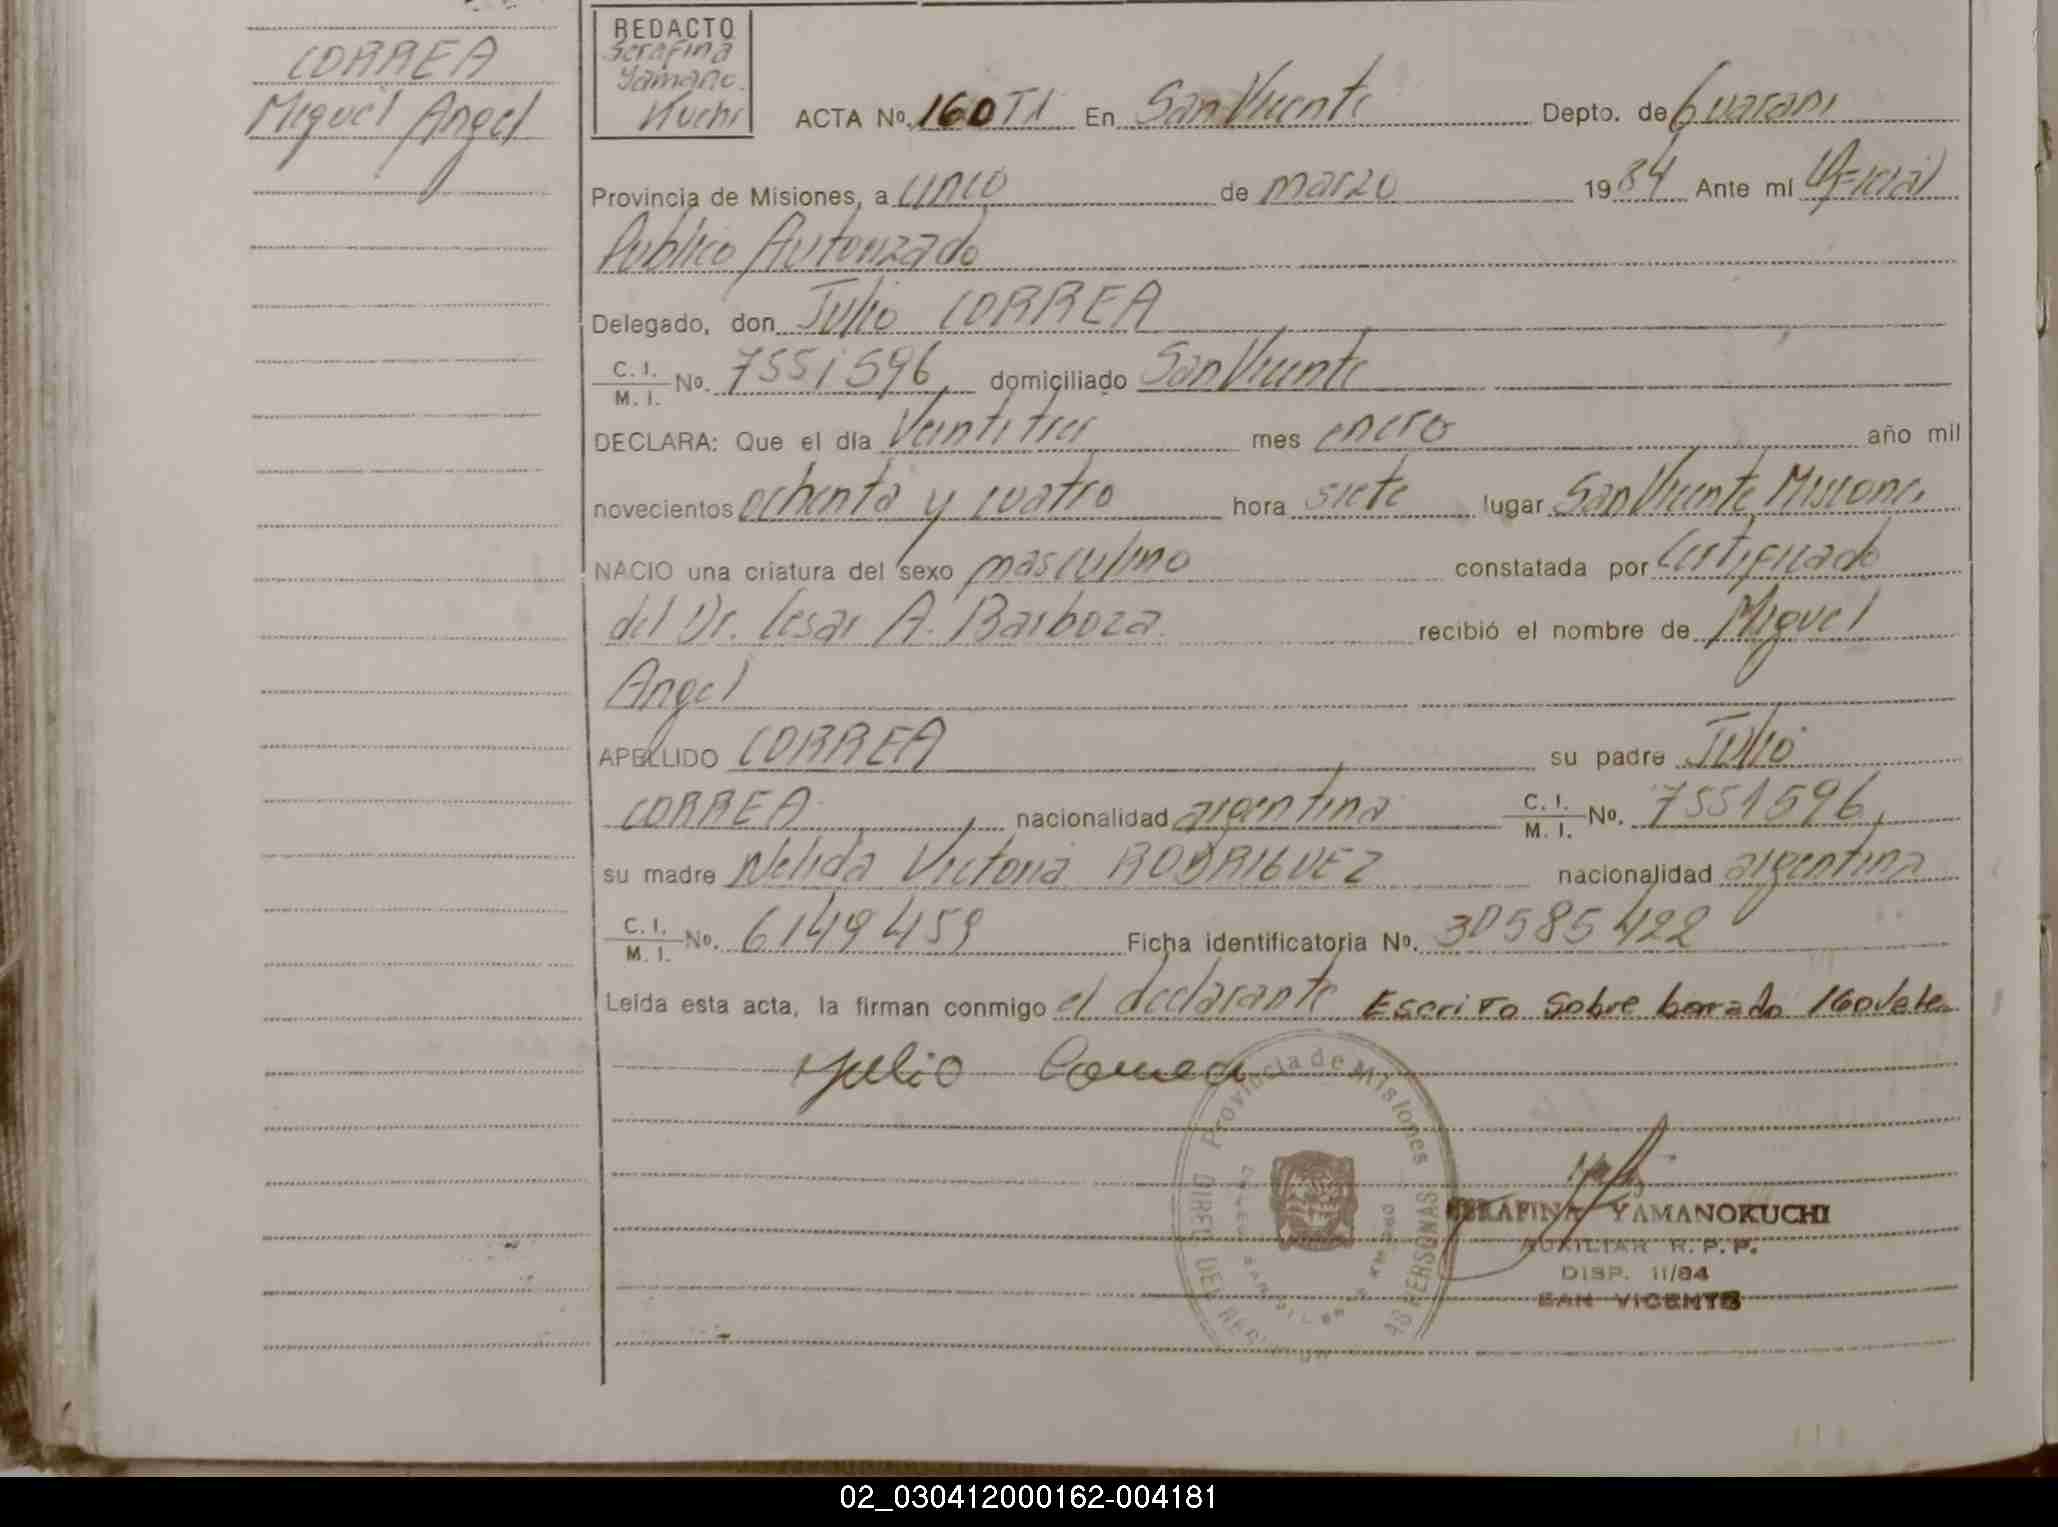 CORREA
Miguel Angel
REDACTO
Serafina
Yamano
Kuchi
ACTA Nº 160 TI En San Vicente Depto. de Guarani
Provincia de Misiones, a cinco de marzo 1984 Ante mí Oficial
Publico Autorizado
Delegado, don Julio CORREA
C. I.
M. I. Nº. 7551596, domiciliado San Vicente
DECLARA: Que el día Veintitres mes enero año mil
novecientos ochenta y cuatro hora siete lugar San Vicente Misiones
NACIO una criatura del sexo masculino constatada por Certificado
del Dr. Cesar A. Barboza recibió el nombre de Miguel
Angel
APELLIDO CORREA su padre Julio
CORREA nacionalidad argentina C. I. M. I. Nº. 7551596,
su madre Nelida Victoria RODRIGUEZ nacionalidad argentina
C. I. M. I. Nº. 6149459 Ficha identificatoria Nº. 30585422
Leída esta acta, la firman conmigo el declarante Escrito Sobre borrado 160 Vale
Julio Correa
Provincia de Misiones
SERAFINA YAMANOKUCHI
AUXILIAR R. P. P.
DISP. 11/84
SAN VICENTE
02_030412000162-004181